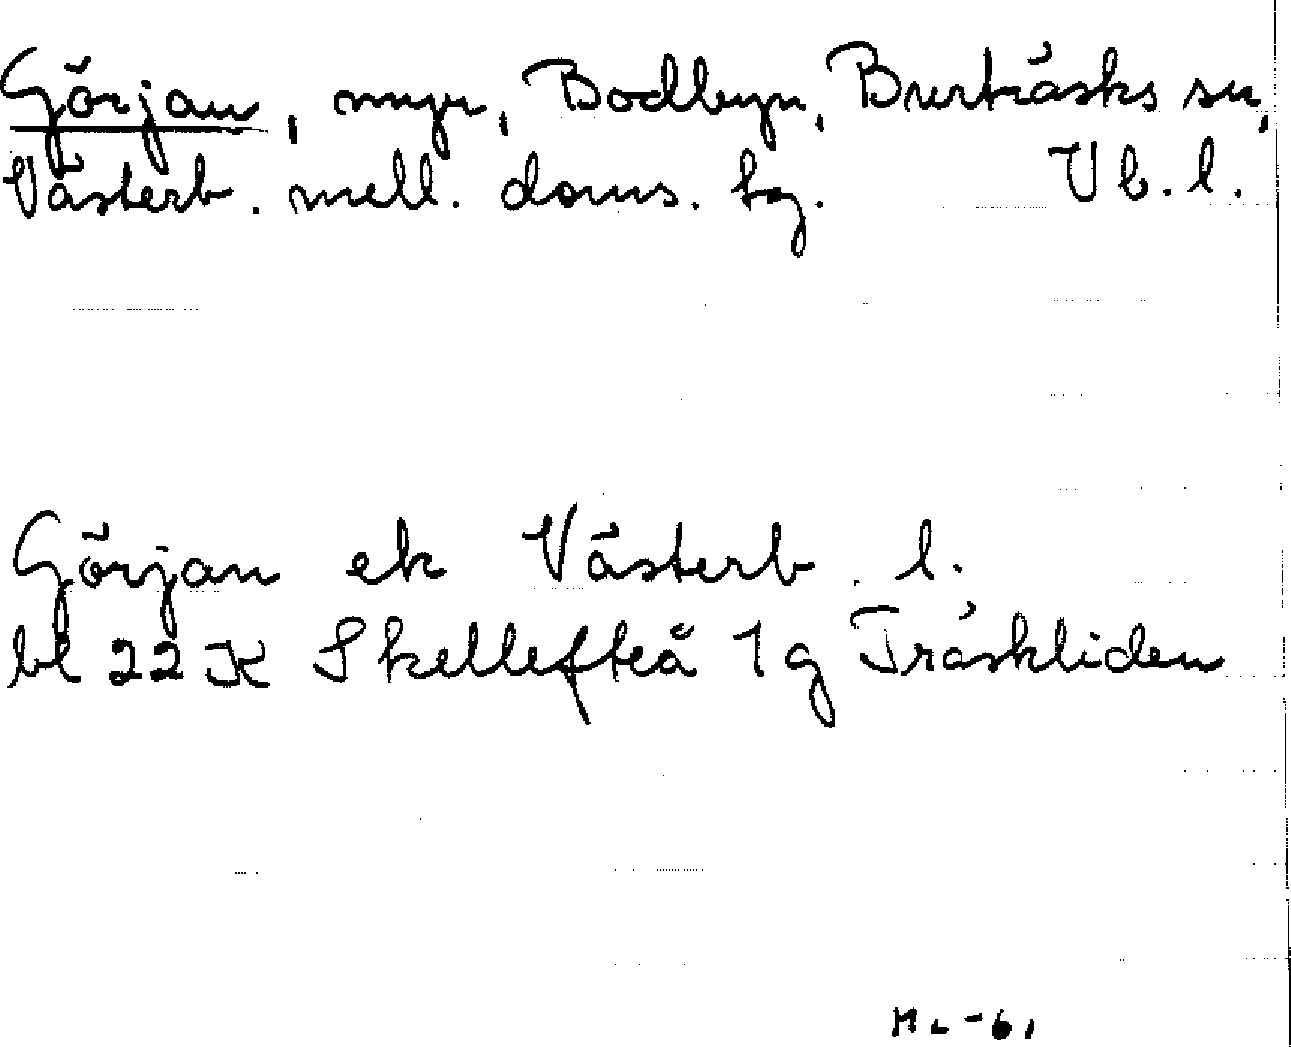 Görjan, myr, Bodbyn, Burträsks sn,
Västerb. mell. doms. tg. Vb. l.
Görjan ek Västerb. l.
bl 22 K Skellefteå 1g Träskliden
HL-61